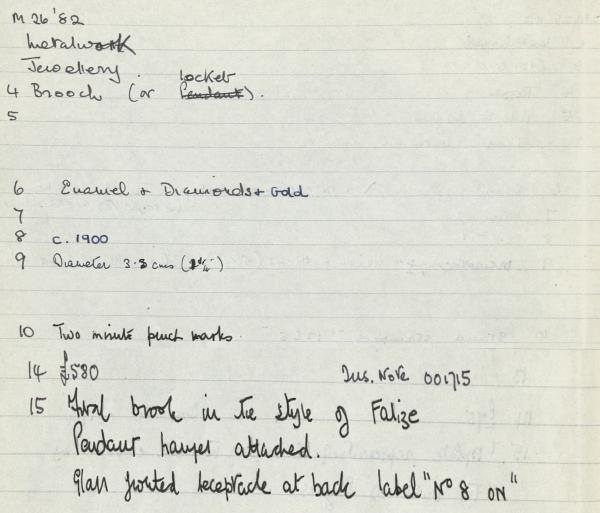 M 26 '82
Metalwork
Jewellery.
locket
4 Brooch (or Pendant).
5
6 Enamel + Diamonds + Gold
7
8 c. 1900
9 Diameter 3.8 cms
10 Two minute punch marks.
14 £580 Ins. Note 001715
15 brooch in the style of Falize
Pendant hanger attached.
Glass fronted receptacle at back label "No 8 ON"